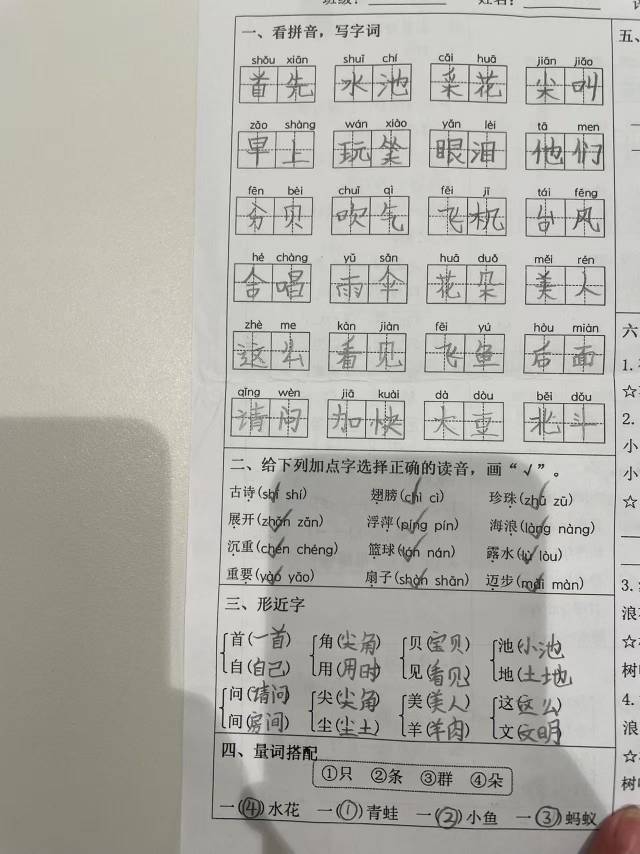 一、看拼音，写字词
shǒu xiān shuǐ chí cài huā jiān jiào
首先 水池 菜花 尖叫
zǎo shàng wán xiào yǎn lèi tā men
早上 玩笑 眼泪 他们
fēn bèi chuī qì fēi jī tái fēng
分贝 吹气 飞机 台风
hé chàng yǔ sǎn huā duǒ měi rén
合唱 雨伞 花朵 美人
zhè me kàn jiàn fēi yú hòu miàn
这么 看见 飞鱼 后面
qǐng wèn jiā kuài dà dòu běi dǒu
请问 加快 大豆 北斗
二、给下列加点字选择正确的读音，画“√”。
古诗(shī shí) 翅膀(chì cì) 珍珠(zhū zū)
展开(zhǎn zǎn) 浮萍(píng pín) 海浪(làng nàng)
沉重(chén chéng) 篮球(lán nán) 露水(lù lòu)
重要(yào yǎo) 扇子(shàn shān) 迈步(mài màn)
三、形近字
首(一首) 角(尖角) 贝(宝贝) 池(小池)
自(自己) 用(用时) 见(看见) 地(土地)
问(请问) 尖(尖角) 美(美人) 这(这么)
间(房间) 尘(尘土) 羊(羊肉) 文(文明)
四、量词搭配
①只 ②条 ③群 ④朵
一(④)水花 一(①)青蛙 一(②)小鱼 一(③)蚂蚁
五、
六
1.
2.
小
小
3.
浪
树
4.
浪
树